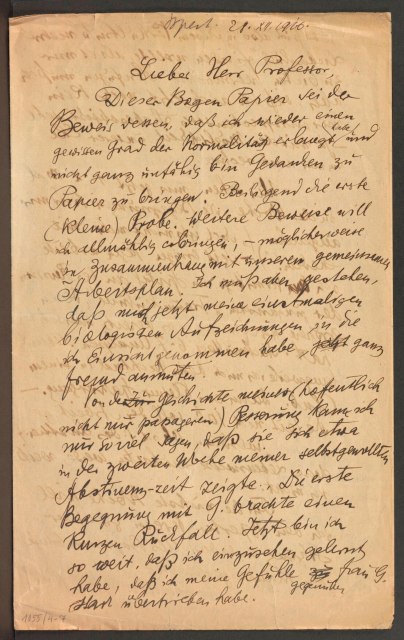 Bpest. 21. XI. 1960.
Lieber Herr Professor,
Dieser Bogen Papier sei der
Beweis dessen, daß ich wieder einen
gewissen Grad der Normalität erlangt habe, und
nicht ganz unfähig bin Gedanken zu
Papier zu bringen. Beiliegend die erste
kleine Probe. Weitere Beweise will
ich allmählig erbringen, – möglicherweise
in Zusammenhang mit unserem gemeinsamen
Arbeitsplan. Ich muß aber gestehen,
daß mich jetzt meine einstmaligen
biologischen Aufzeichnungen, in die
ich Einsicht genommen habe, ganz
fremd anmuten.
Von der Geschichte meiner (hoffentlich
nicht nur passageren) Besserung kann ich
nur so viel sagen, daß sie sich etwa
in der zweiten Woche meiner selbstgewollten
Abstinenz-zeit zeigte. Die erste
Begegnung mit G. brachte einen
kurzen Rückfall. Jetzt bin ich
so weit, daß ich einzusehen gelernt
habe, daß ich meine Gefühle Frau G.
gegenüber
stark übertrieben habe.
1155/4-7